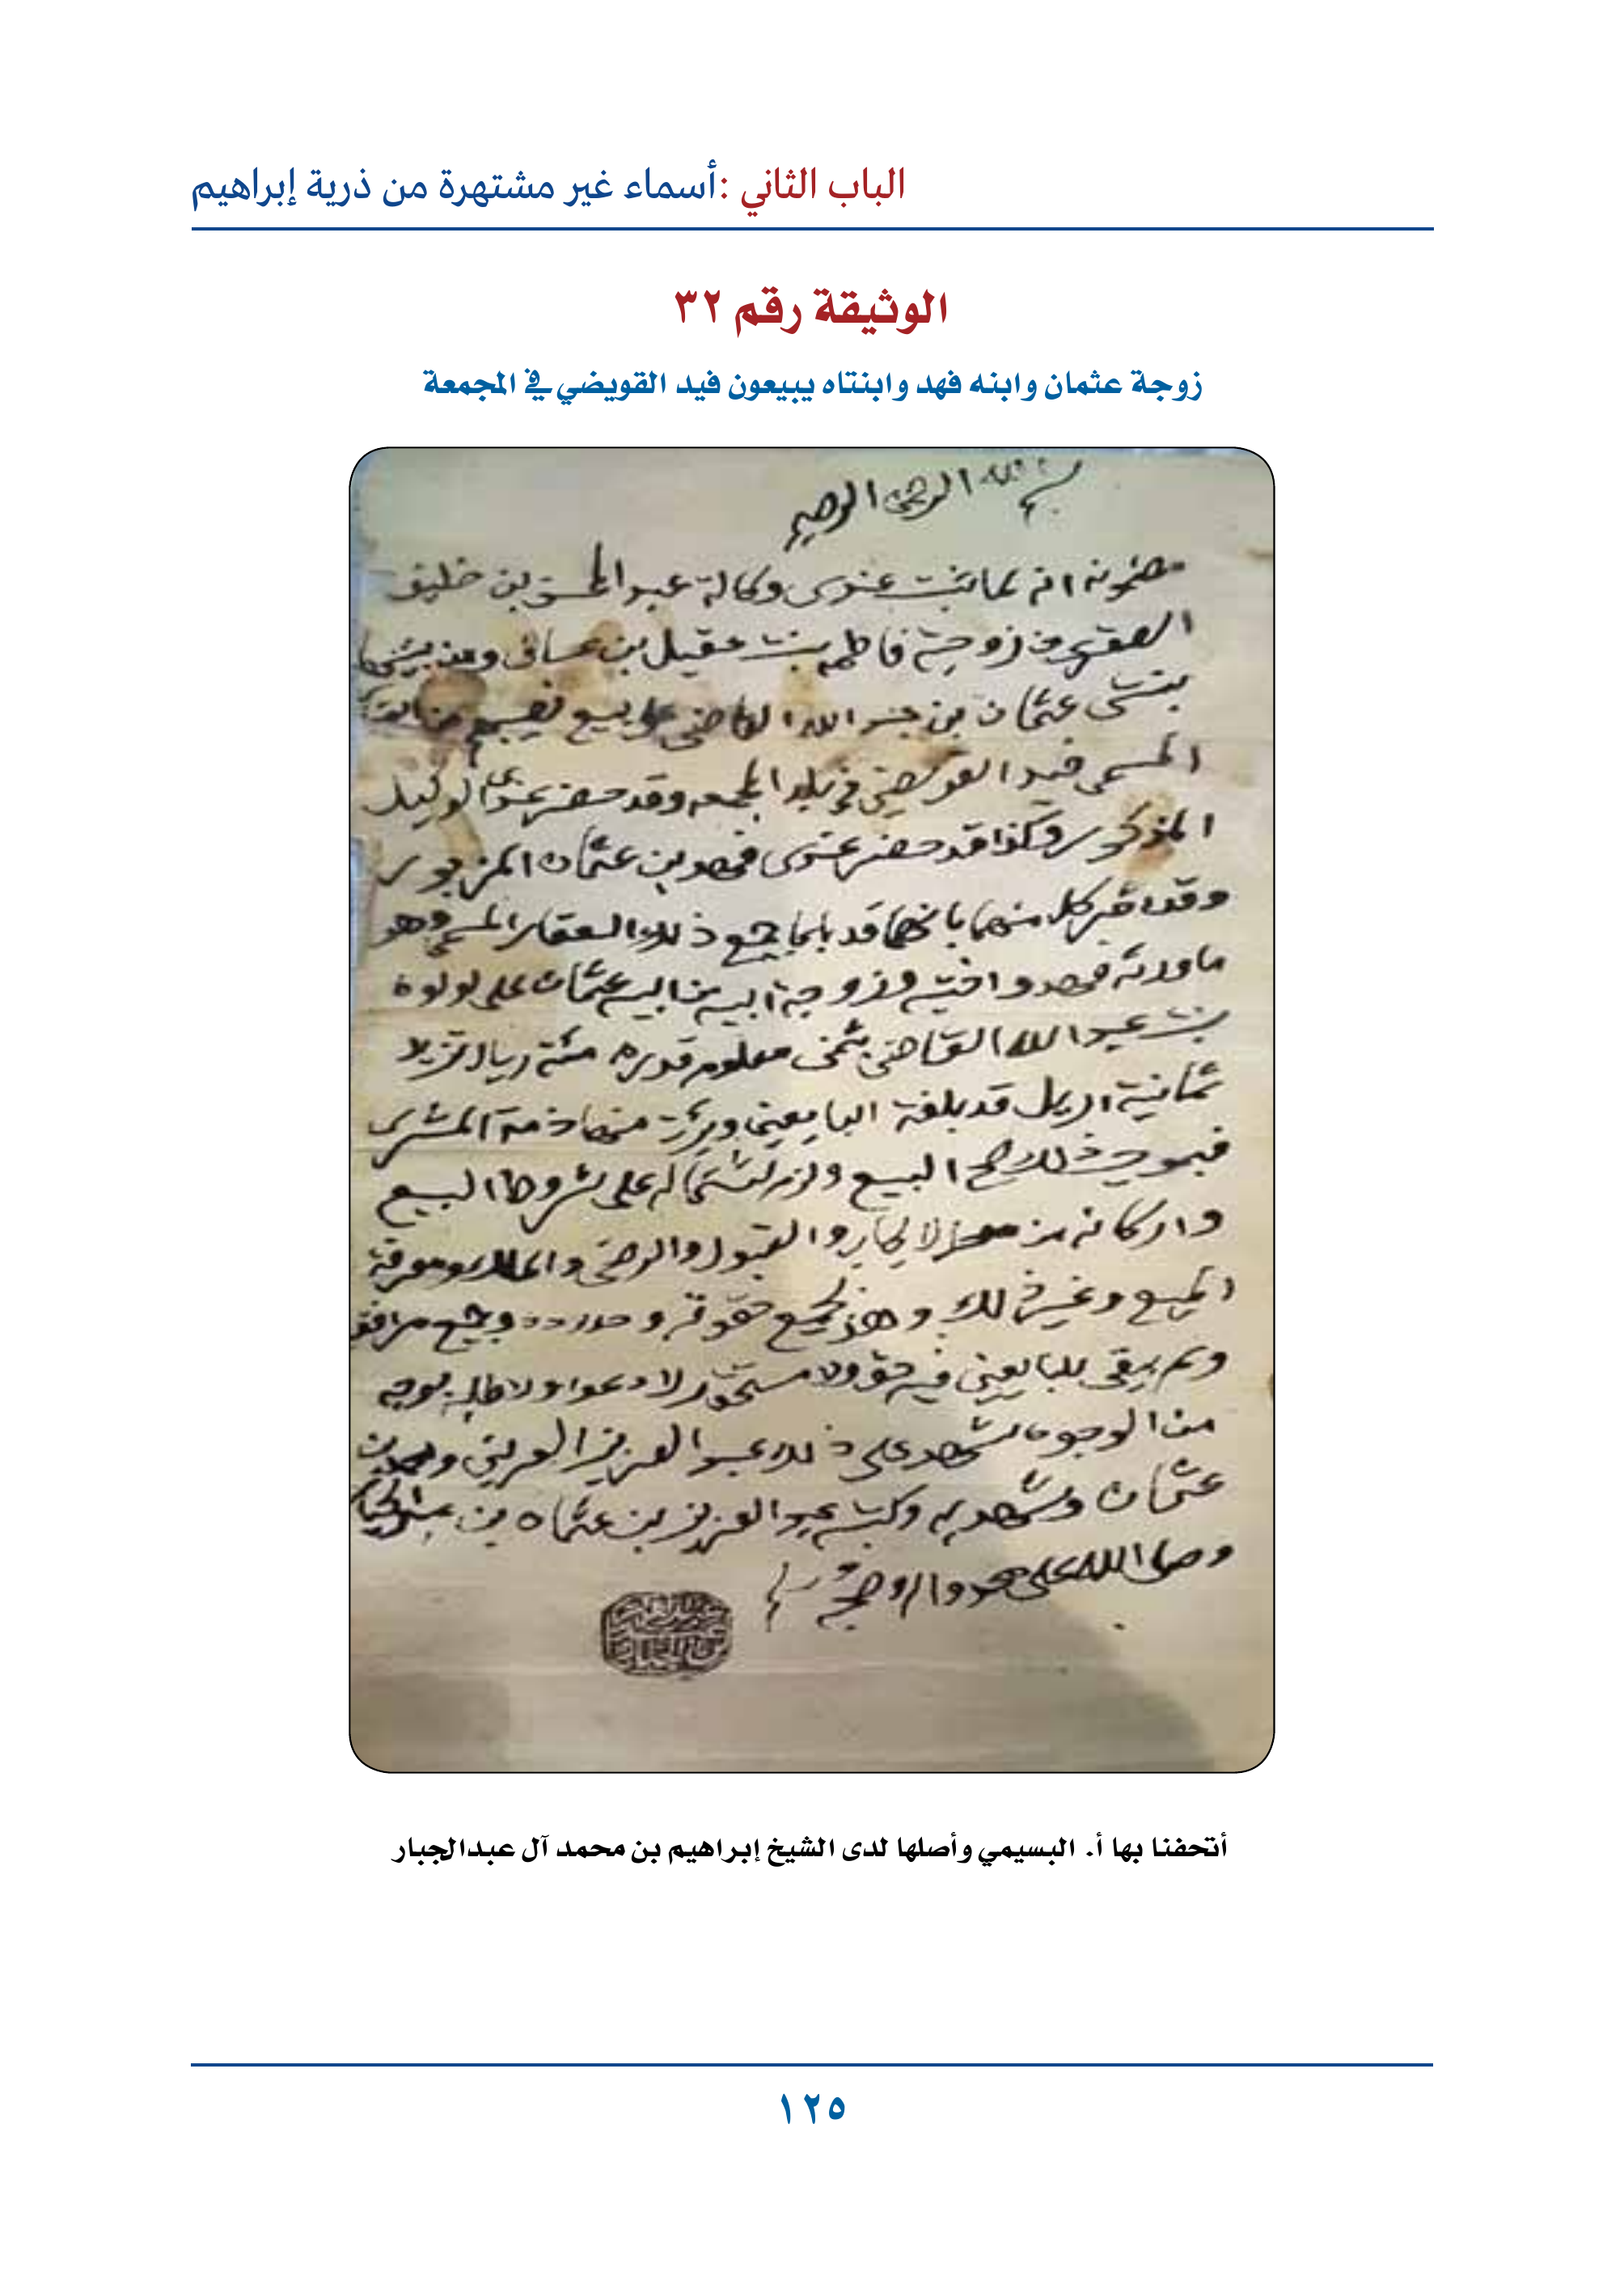 الباب الثاني :أسماء غير مشتهرة من ذرية إبراهيم
الوثيقة رقم ٣٢
زوجة عثمان وابنه فهد وابنتاه يبيعون فيد القويضي في المجمعة
بسم الله الرحمن الرحيم
مضمونه انه لما ثبت عندي وكالة عبدالمحسن بن خليف
الصقري من زوجته فاطمه بنت عقيل بن عساف ومن بنتيها
بنتي عثمان بن عبد الله القاضي على بيع نصيبهم من
المسمى فيد القويضي في بلد المجمعه وقد حضر عندي الوكيل
المذكور وكذا قد حضر عندي فهد بن عثمان المزبور
وقد اقر كل منهما بانهما قد باعا جميع ذلك العقار المسمى وهو
ما ورثه فهد واختيه وزوجة ابيه من ابيه عثمان على لولوة
بنت عبد الله القاضي بثمن معلوم قدره مئة ريال تزيد
ثمانية اريل قد بلغة البايعين وبرئت منها ذمة المشتري
فبموجب ذلك صح البيع ولزم لاشتماله على شروط البيع
واركانه من الايجاب والقبول والرضى والملك ومعرفة
المبيع وغير ذلك وهذه بجميع حقوقه وحدوده وجميع مرافقه
ولم يبقى للبايعين فيه حق ولا مستحق ولا دعوا ولا طلبه بوجه
من الوجوه شهد على ذلك عبد العزيز العريني وفهد بن
عثمان وشهد به وكتبه عبد العزيز بن عثمان بن عبدالجبار
وصلى الله على محمد واله وصحبه وسلم
أتحفنا بها أ. البسيمي وأصلها لدى الشيخ إبراهيم بن محمد آل عبدالجبار
١٢٥